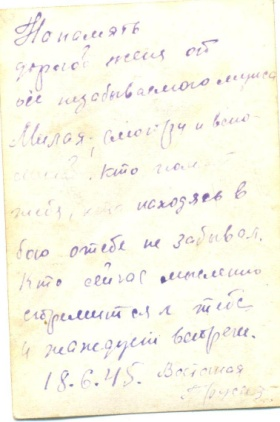 На память
дорогой жене от
её незабываемого мужа
Милая, смотри и вспо-
кто
находясь в
бою о тебе не забывал.
Кто сейчас мысленно
стремится к тебе
и жаждует встречи.
18.6.45. Восточная
Пруссия.